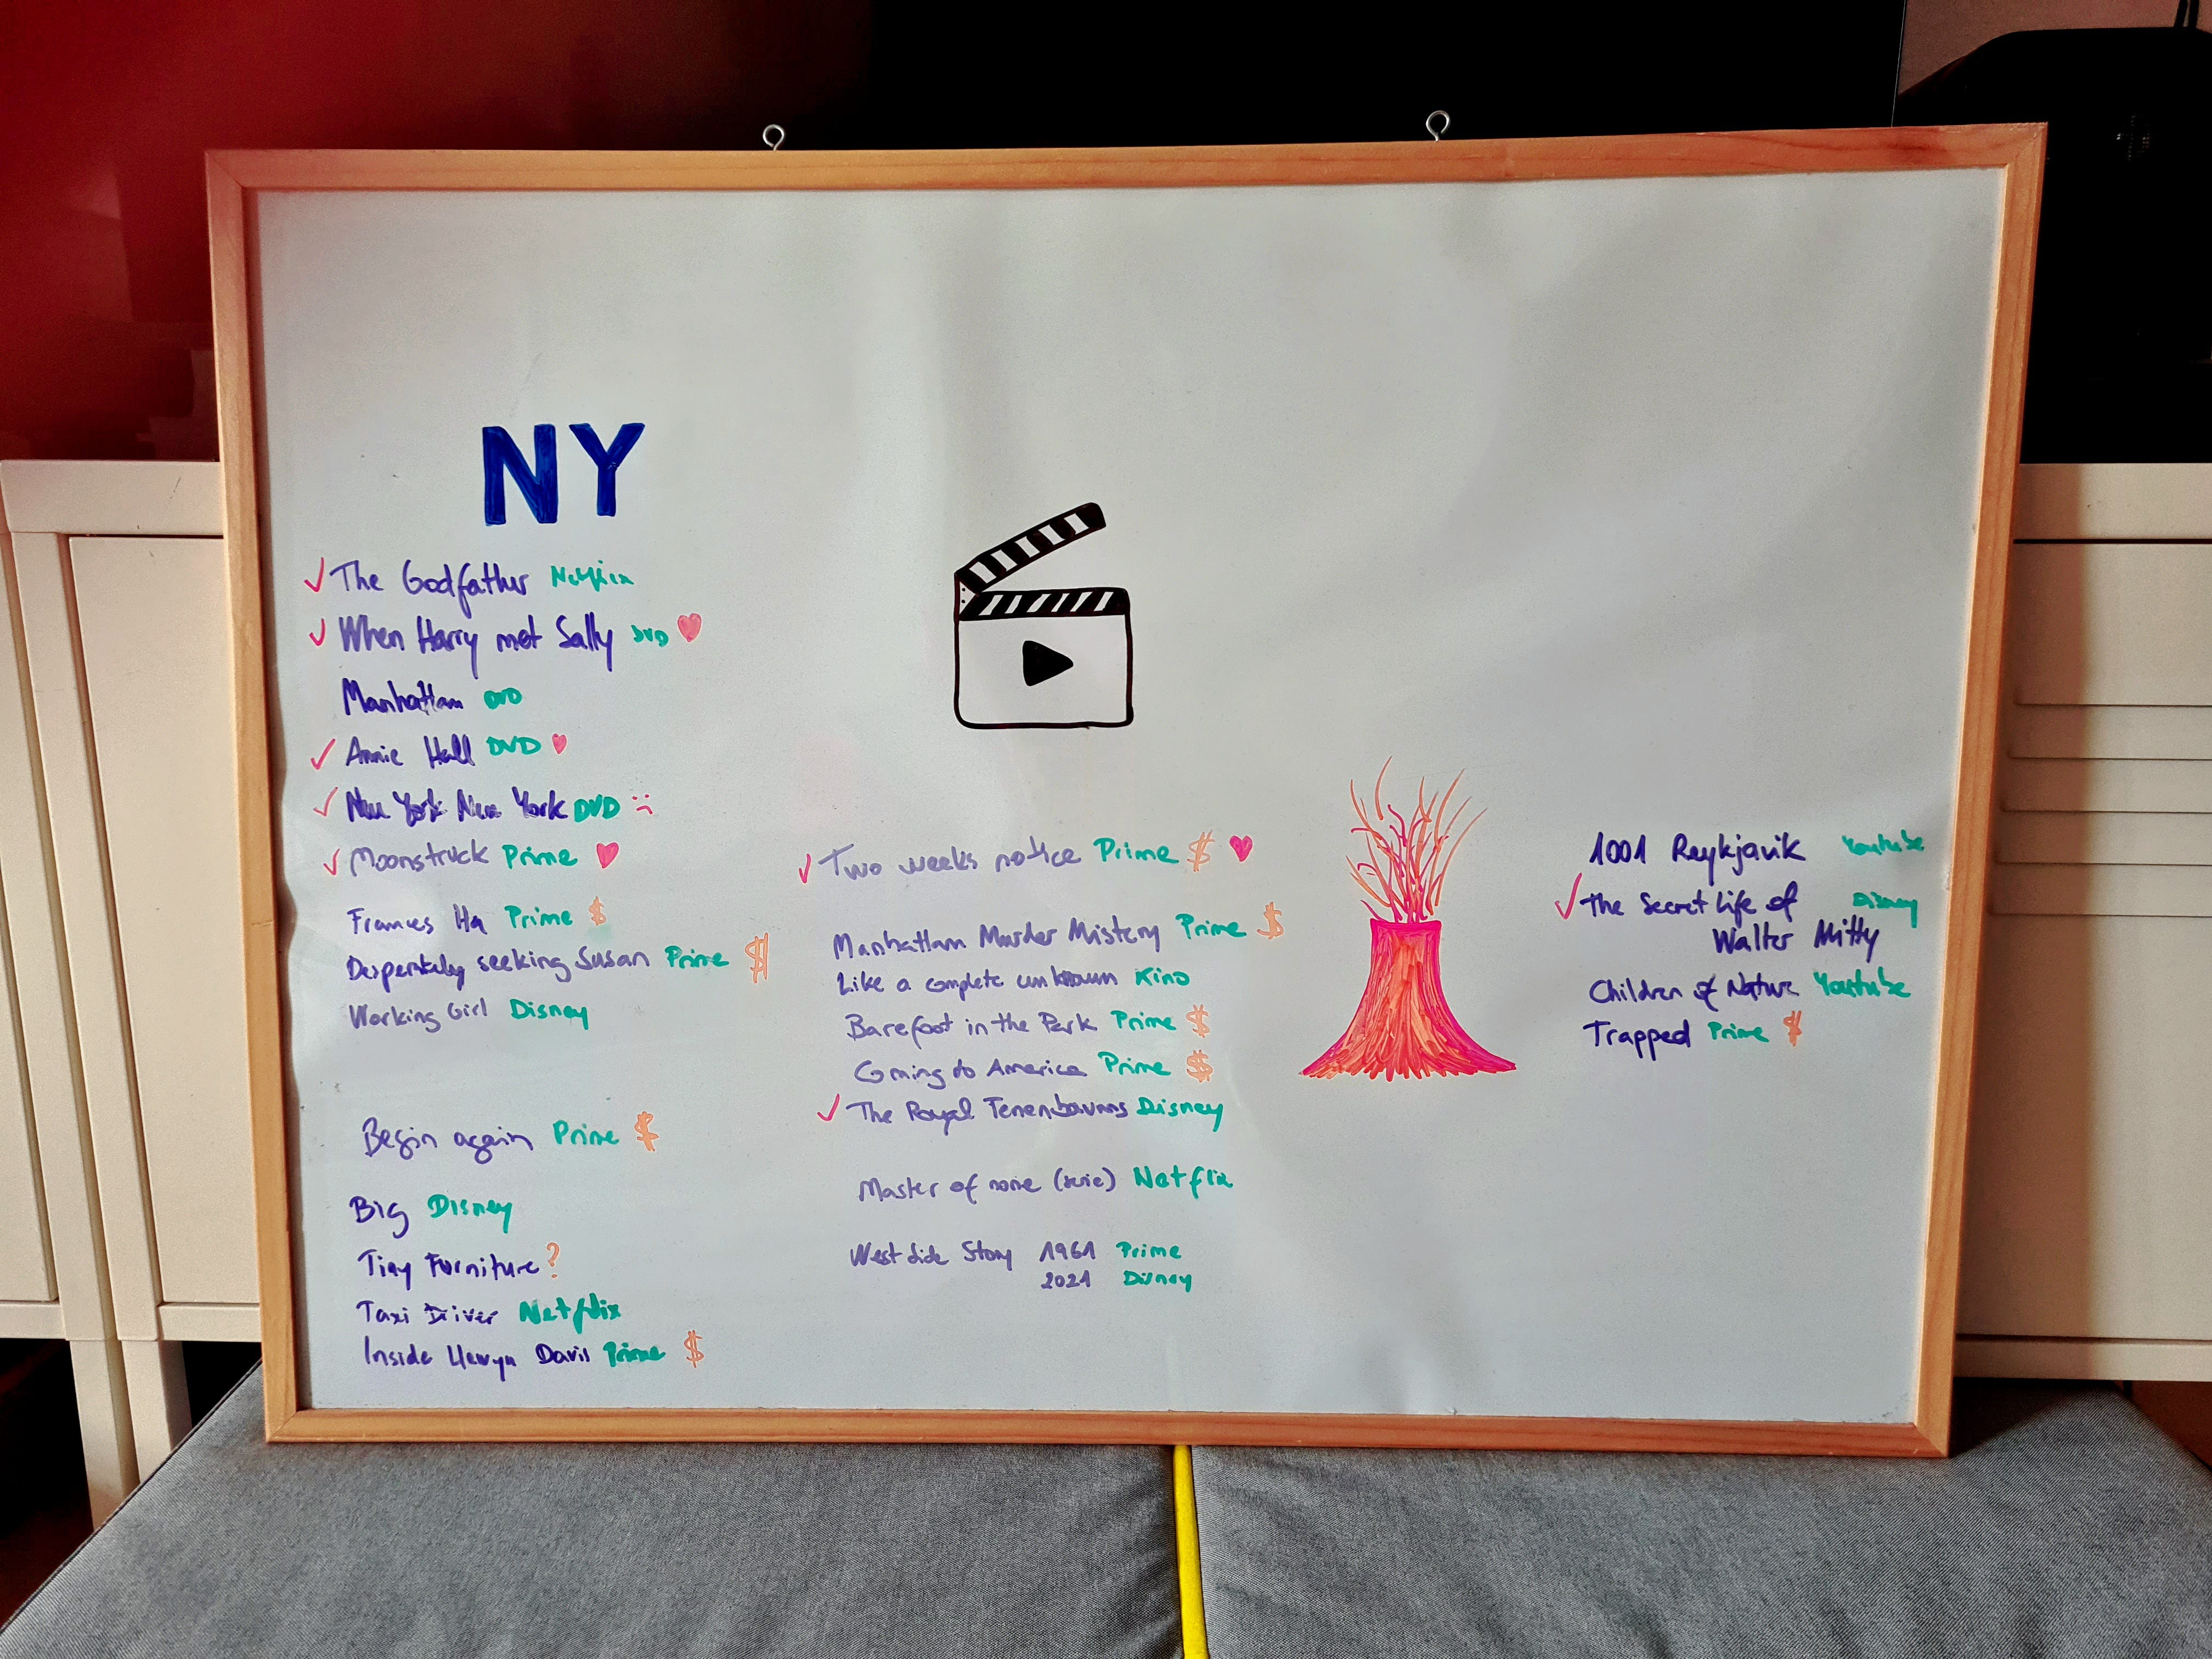 NY
✓ The Godfather Netflix
✓ When Harry met Sally DVD ♥
Manhattan DVD
✓ Annie Hall DVD ♥
✓ New York New York DVD :(
✓ Moonstruck Prime ♥
Frances Ha Prime $
Desperately seeking Susan Prime $
Working Girl Disney
Begin again Prime $
Big Disney
Tiny Furniture ?
Taxi Driver Netflix
Inside Llewyn Davis Prime $
✓ Two weeks notice Prime $ ♥
Manhattan Murder Mistery Prime $
Like a complete unknown Kino
Barefoot in the Park Prime $
Coming to America Prime $
✓ The Royal Tenenbaums Disney
Master of none (serie) Netflix
West side Story 1961 Prime
2021 Disney
1001 Reykjavik Youtube
✓ The Secret Life of Disney
Walter Mitty
Children of Nature Youtube
Trapped Prime $